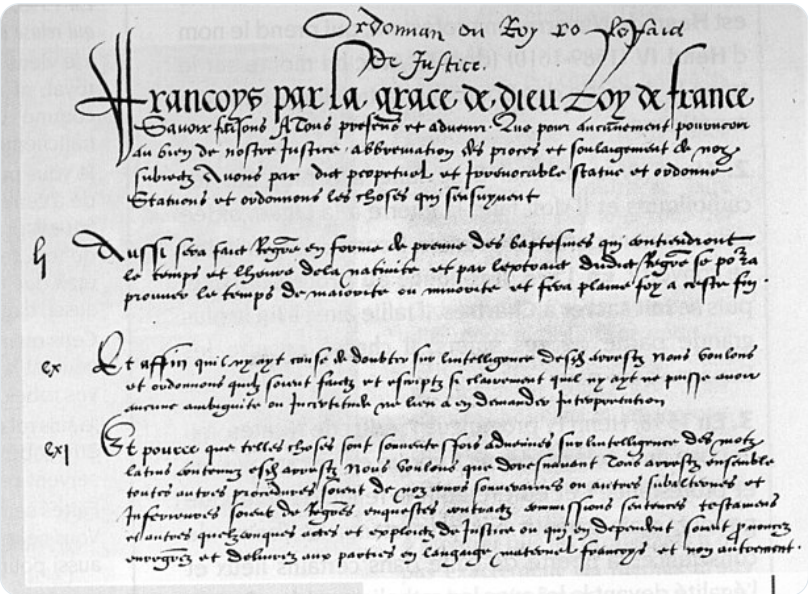 Ordonnan du Roy
de Justice.
Francoys par la grace de dieu Roy de france
Savoir faisons A Tous presens et advenir. Que pour aucunement pourveoir
au bien de nostre Justice abbreviation des proces et soulaigement de noz
subiectz Avons par edict perpetuel et Irrevocable statue et ordonne
Statuons et ordonnons les choses qui sensuyvent
li Aussi sera faict Regre en forme de preuve des baptesmes qui contiendront
le temps et lheure dela nativite et par lextraict dudict Regre se porra
prouver le temps de maiorite ou minorite et fera plaine foy a ceste fin.
cx Et affin quil ny ayt cause de doubter sur lintelligence desd arrestz Nous voulons
et ordonnons quilz soient faictz et escriptz si clairement quil ny ayt ne puisse avoir
aucune ambiguite ou Incertitude ne lieu a en demander Interpretation
cxi Et pource que telles choses sont souventesfois advenues sur lintelligence des motz
latins contenuz esd arrestz Nous voulons que doresnavant Tous arrestz ensemble
toutes autres procedures soient de noz cours souveraines ou autres subalternes et
Inferieures soient de Regres enquestes contractz commissions sentences testamens
et autres quelzconques actes et exploictz de Justice ou qui en dependent soient pnoncez
enregrez et delivrez aux parties en langaige maternel francoys et non autrement.